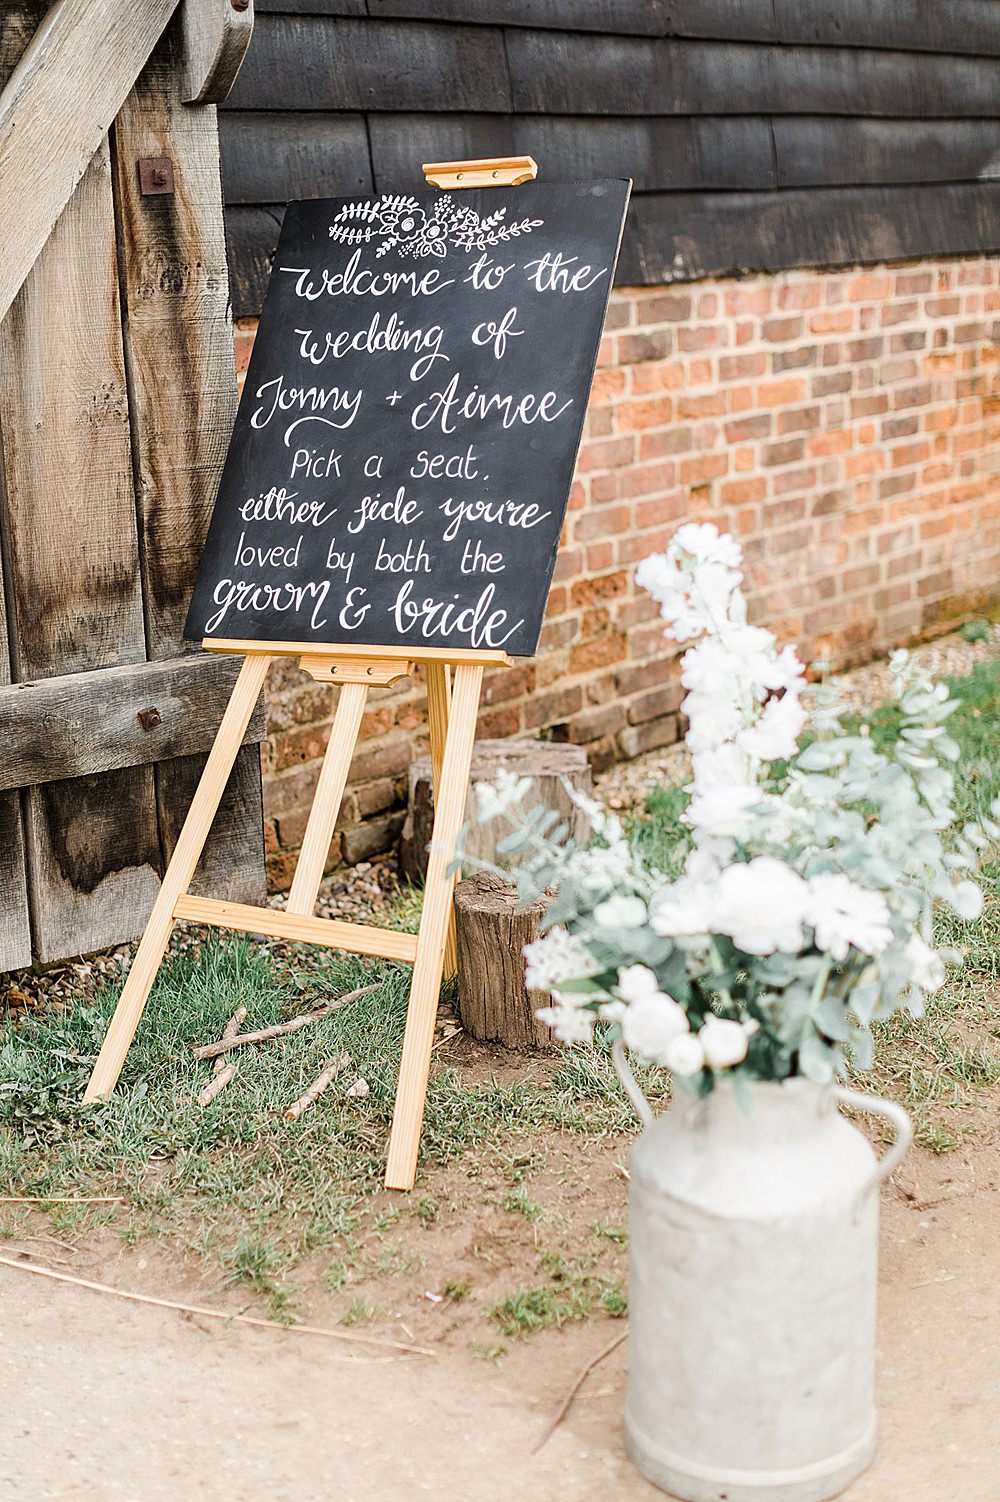 Welcome to the
wedding of
Jonny + Aimee
Pick a seat,
either side you're
loved by both the
groom & bride